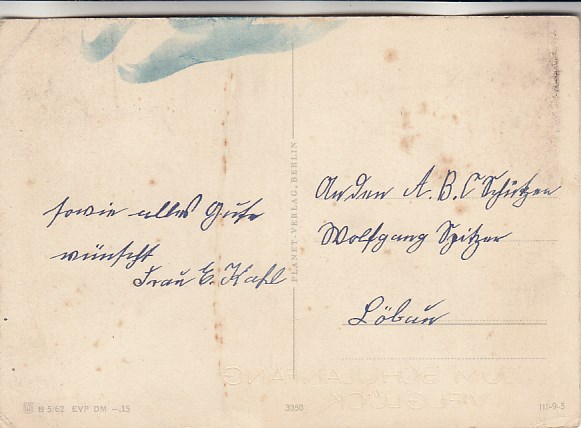 sowie alles Gute
wünscht
Frau E. Kahl
PLANET-VERLAG, BERLIN
An den A. B. C Schützen
Wolfgang Spitzer
Löbau
ZUM SCHULANFANG
VIEL GLÜCK
B 5/62 EVP DM -.15
3350
III-9-5